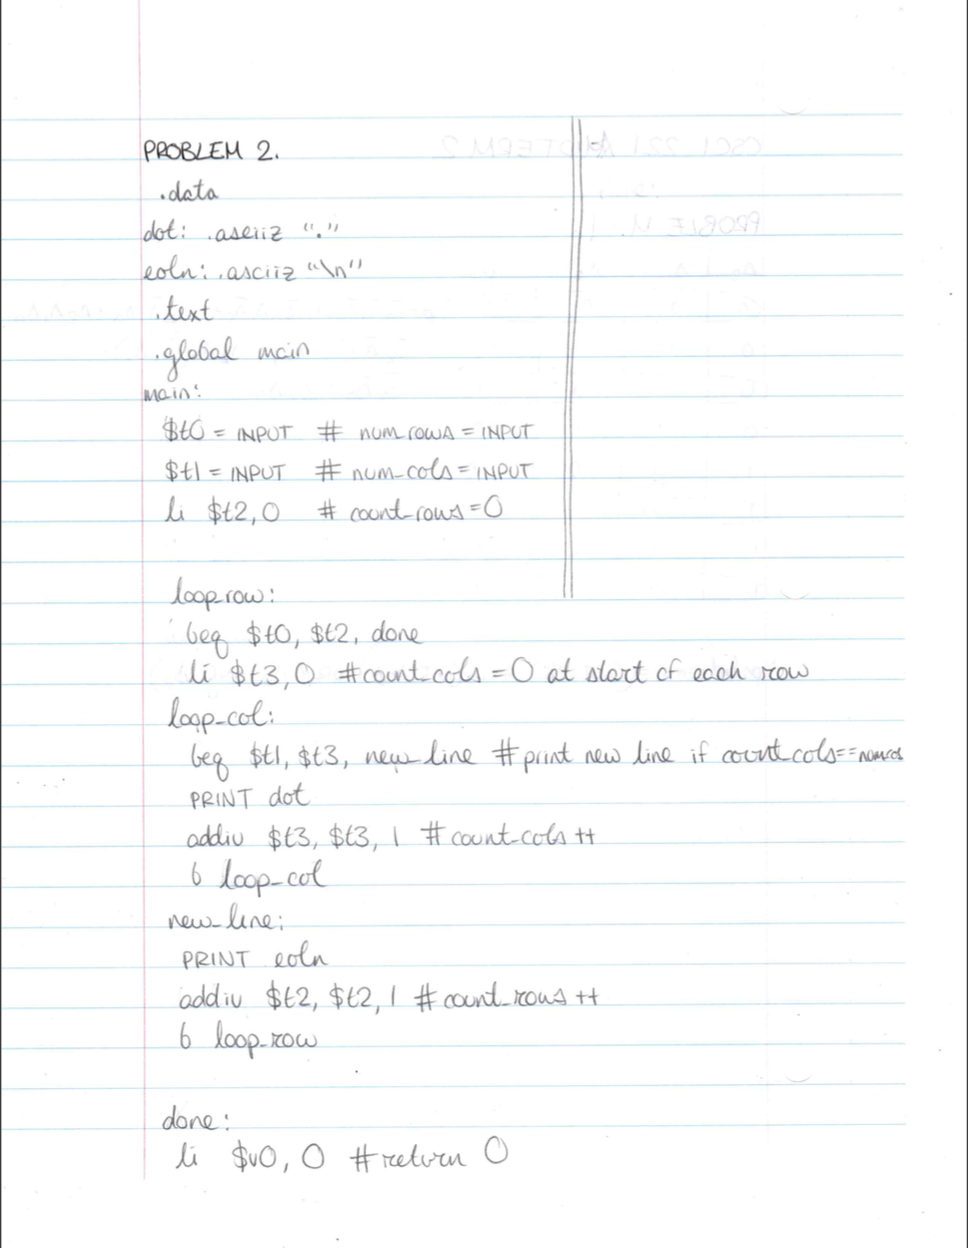 PROBLEM 2.
.data
dot: .asciiz "."
eoln: .asciiz "\n"
.text
.global main
main:
$t0 = INPUT # num_rows = INPUT
$t1 = INPUT # num_cols = INPUT
li $t2, 0 # count_rows = 0
loop_row:
beq $t0, $t2, done
li $t3, 0 # count_cols = 0 at start of each row
loop_col:
beq $t1, $t3, new_line # print new line if count_cols ==
PRINT dot
addiu $t3, $t3, 1 # count_cols ++
b loop_col
new_line:
PRINT eoln
addiu $t2, $t2, 1 # count_rows ++
b loop_row
done:
li $v0, 0 # return 0